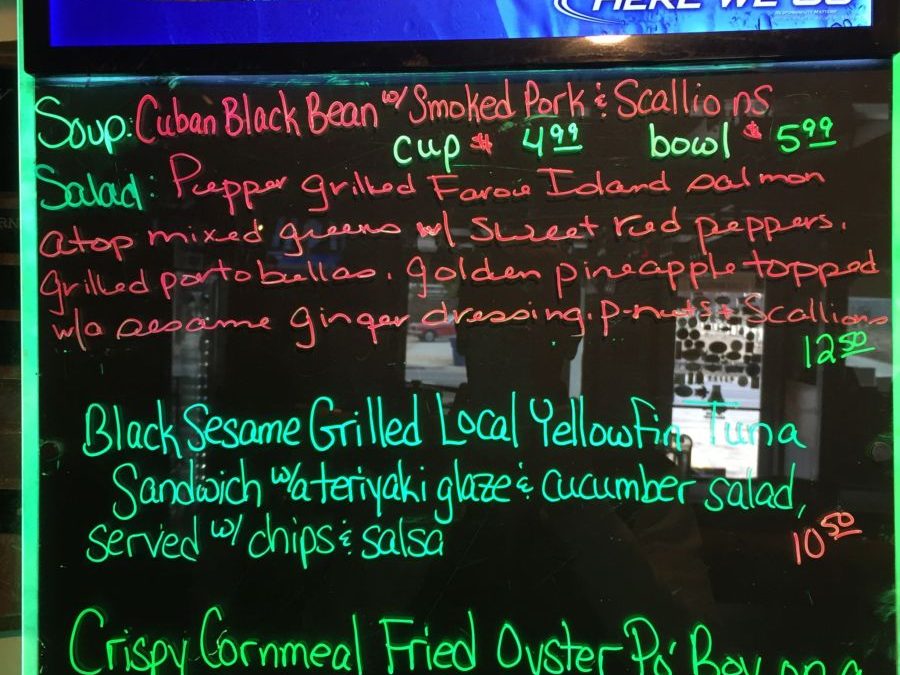 HERE WE GO
Soup: Cuban Black Bean w/ Smoked Pork & Scallions
cup $ 4.99 bowl $ 5.99
Salad: Pepper grilled Faroe Island salmon
atop mixed greens w/ sweet red peppers,
grilled portobellas, golden pineapple topped
w/a sesame ginger dressing, p-nuts & Scallions
12.50
Black Sesame Grilled Local Yellowfin Tuna
Sandwich w/a teriyaki glaze & cucumber salad,
served w/ chips & salsa
10.50
Crispy Cornmeal Fried Oyster Po' Boy on a